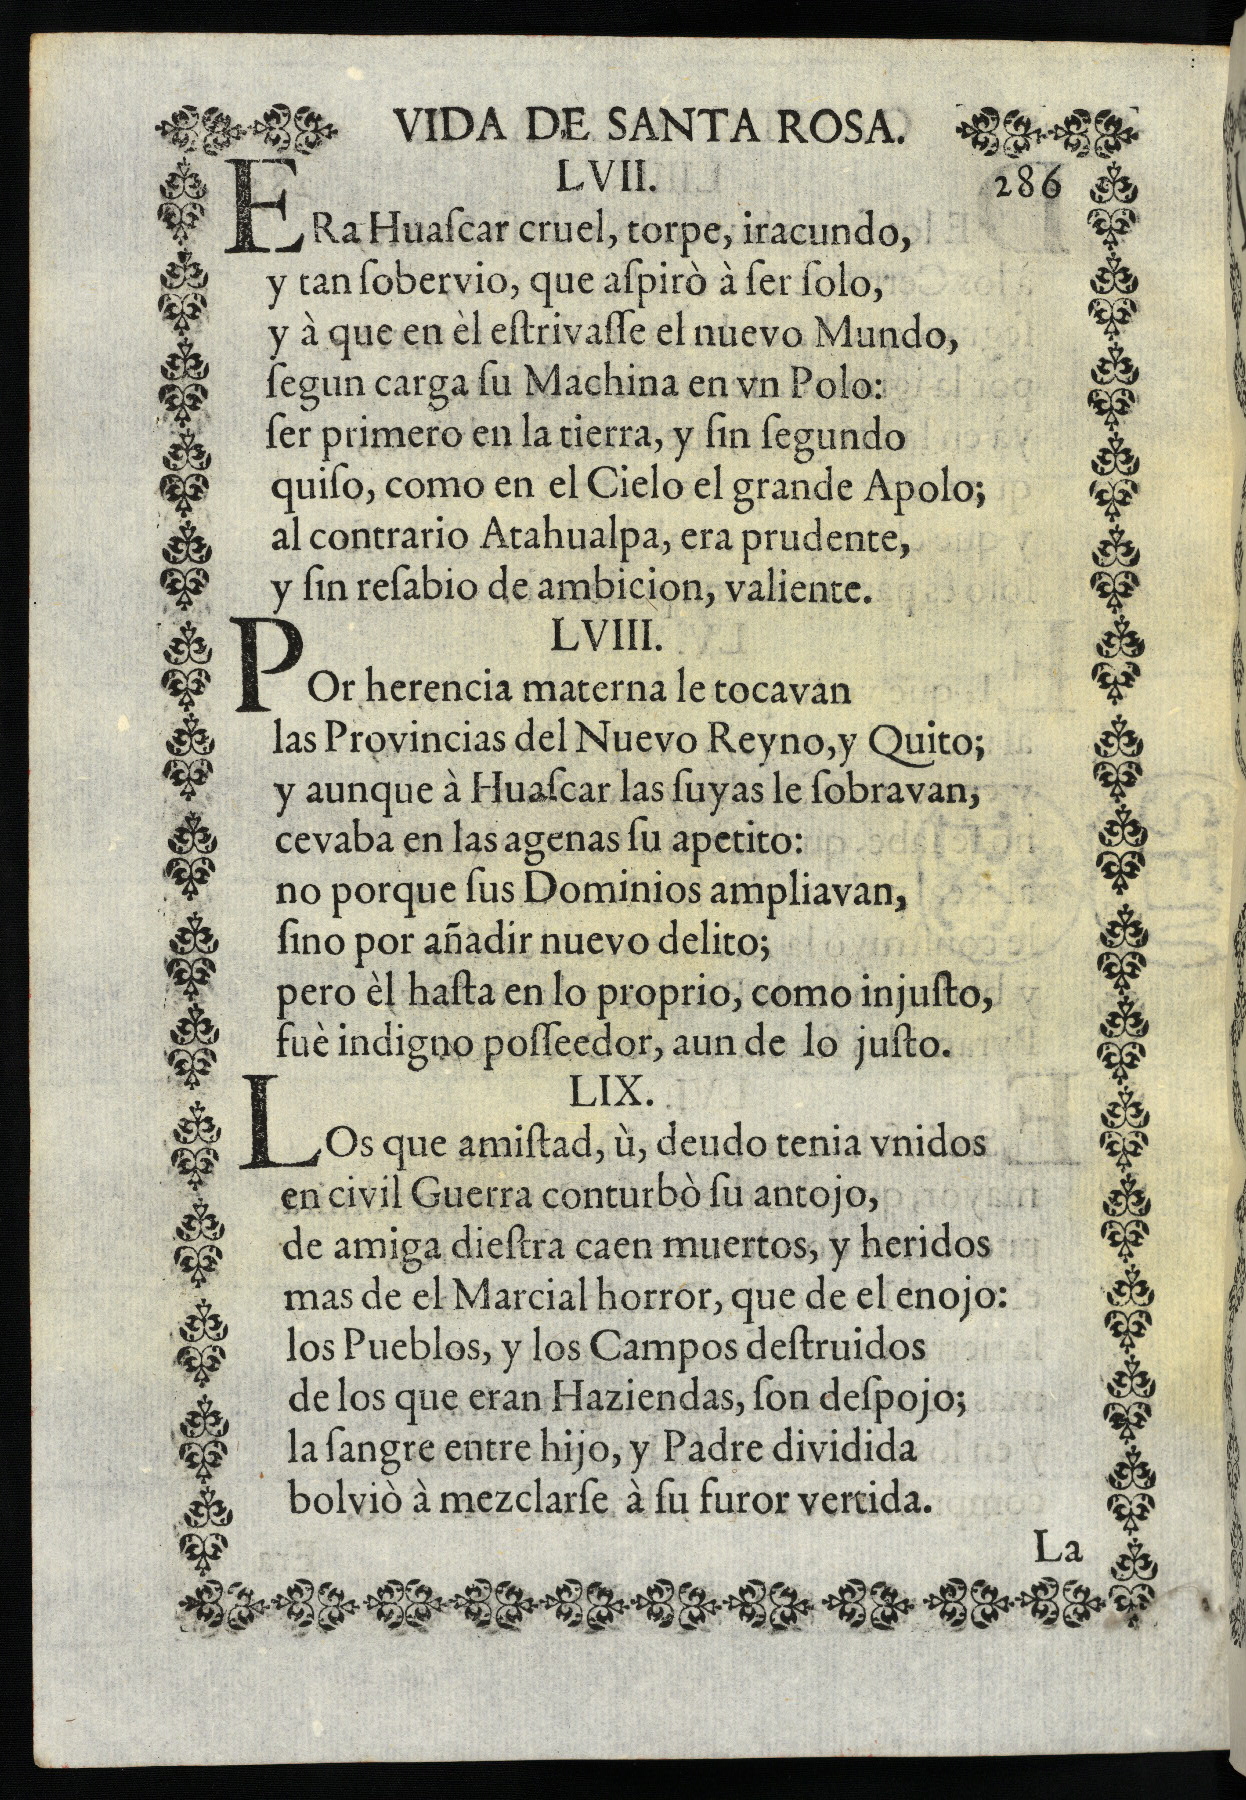 VIDA DE SANTA ROSA.
LVII.
286
ERa Huaſcar cruel, torpe, iracundo,
y tan ſobervio, que aſpirò à ſer ſolo,
y à que en èl eſtrivaſſe el nuevo Mundo,
ſegun carga ſu Machina en vn Polo:
ſer primero en la tierra, y ſin ſegundo
quiſo, como en el Cielo el grande Apolo;
al contrario Atahualpa, era prudente,
y ſin reſabio de ambicion, valiente.
LVIII.
POr herencia materna le tocavan
las Provincias del Nuevo Reyno, y Quito;
y aunque à Huaſcar las ſuyas le ſobravan,
cevaba en las agenas ſu apetito:
no porque ſus Dominios ampliavan,
ſino por añadir nuevo delito;
pero èl haſta en lo proprio, como injuſto,
fuè indigno poſſeedor, aun de lo juſto.
LIX.
LOs que amiſtad, ù, deudo tenia vnidos
en civil Guerra conturbò ſu antojo,
de amiga dieſtra caen muertos, y heridos
mas de el Marcial horror, que de el enojo:
los Pueblos, y los Campos deſtruidos
de los que eran Haziendas, ſon deſpojo;
la ſangre entre hijo, y Padre dividida
bolviò à mezclarſe à ſu furor vertida.
La